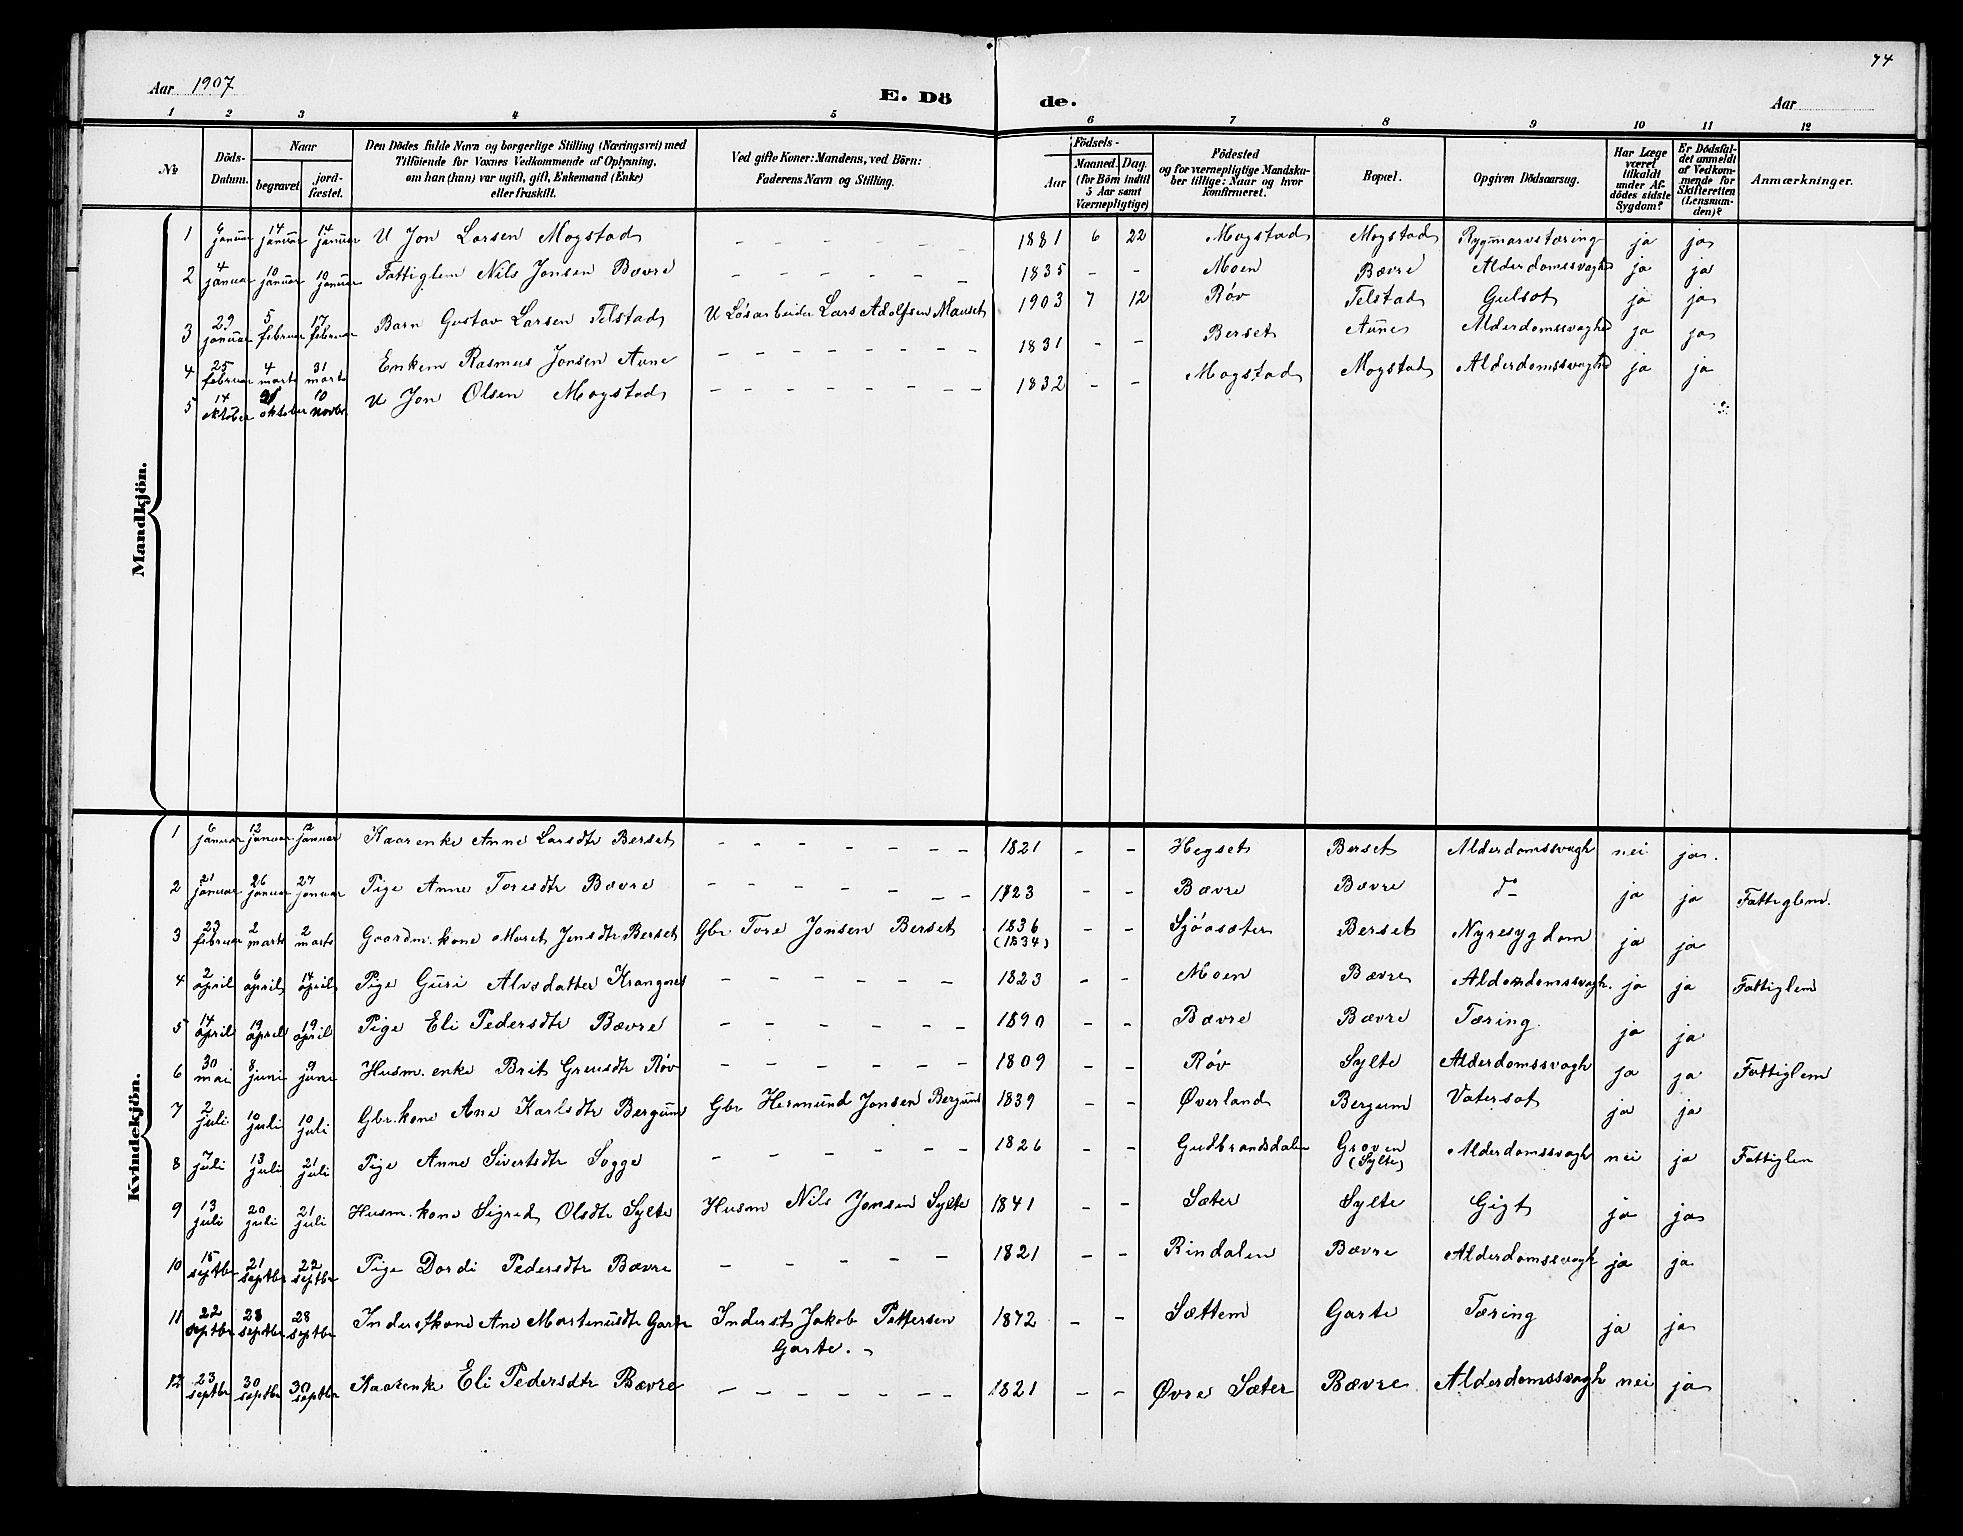 74
Aar 1907
E. Dö de.
Aar
1 2 3 4 5 6 7 8 9 10 11 12
No
Döds-Datum.
Naar
begravet
jord-fæstet.
Den Dödes fulde Navn og borgerlige Stilling (Næringsvei) med
Tilföiende for Voxnes Vedkommende af Oplysning,
om han (hun) var ugift, gift, Enkemand (Enke)
eller fraskilt.
Ved gifte Koner: Mandens, ved Börn:
Faderens Navn og Stilling.
Födsels-
Aar
Maaned. Dag.
(for Börn indtil
5 Aar samt
Værnepligtige)
Födested
og for værnepligtige Mandsku-
ber tillige: Naar og hvor
konfirmeret.
Bopæl.
Opgiven Dödsaarsag.
Har Læge
været
tilkaldt
under Af-
dödes sidste
Sygdom?
Er Dödsfal-
det anmeldt
af Vedkom-
mende for
Skifteretten
(Lensman-
den)?
Anmærkninger.
Mandkjön.
1 6 januar 14 januar 14 januar U Jon Larsen Mogstad – – – – – – 1881 6 22 Mogstad Mogstad Rygmarvstæring ja ja
2 4 januar 10 januar 10 januar Fattiglem Nils Jonsen Bævre – – – – – – 1835 – – Moen Bævre Alderdomssvaghed ja ja
3 29 januar 5 februar 17 februar Barn Gustav Larsen Telstad U Løsarbeider Lars Adolfsen Mauset 1903 7 12 Røv Telstad Gulsot ja ja
4 25 februar 4 marts 31 marts Enkem Rasmus Jonsen Aune – – – – – – – – 1831 – – Berset Aune Alderdomssvaghed ja ja
5 14 oktober 21 oktober 10 novbr U Jon Olsen Mogstad – – – – – – – – 1832 – – Mogstad Mogstad Alderdomssvaghed ja ja
Kvindekjön.
1 6 januar 12 januar 12 januar Kaarenke Anne Larsdtr Berset – – – – – – – – 1821 – – Hegset Berset Alderdomssvagh nei ja.
2 21 januar 26 januar 27 januar Pige Anne Toresdtr Bævre – – – – – – – 1823 – – Bævre Bævre do ja ja Fattiglem.
3 23 februar 2 marts 2 marts Gaardm. kone Maret Jonsdtr Berset Gbr Tore Jonsen Berset 1836 (1834) – – Sjøasæter Berset Nyresygdom ja ja
4 2 april 6 april 14 april Pige Guri Alvsdatter Krangnes – – – – – – 1823 – – Moen Bævre Alderdomssvagh. ja ja Fattiglem
5 14 april 19 april 19 april Pige Eli Pedersdtr Bævre – – – – – – 1890 – – Bævre Bævre Tæring. ja ja
6 30 mai 8 juni 9 juni Husm. enke Brit Greusdtr Røv – – – – – – 1809 – – Røv Sylte Alderdomssvagh ja ja Fattiglem
7 2 juli 10 juli 10 juli Gbr. kone Ane Karlsdtr Bergum Gbr Hermund Jonsen Bergum 1839 – – Øverland Bergum Vatersot ja ja
8 7 juli 13 juli 21 juli Pige Anne Sivertsdtr Sogge – – – – – – 1826 – – Gudbrandsdalen Groven (Sylte) Alderdomssvagh nei ja Fattiglem
9 13 juli 20 juli 21 juli Husm. kone Sigrid Olsdtr Sylte Husm Nils Jonsen Sylte 1841 – – Sæter Sylte Gigt ja ja
10 15 septbr 21 septbr 22 septbr Pige Dordi Pedersdtr Bævre – – – – – – 1821 – – Rindalen Bævre Alderdomssvagh ja ja
11 22 septbr 28 septbr 28 septbr Inderstkone Ane Martenusdtr Garte Inderst Jakob Pettersen Garte. 1872 – – Sættem Garte Tæring ja ja
12 23 septbr 30 septbr 30 septbr Kaarenke Eli Pedersdtr Bævre – – – – – – – 1821 – – Øvre Sæter Bævre Alderdomssvagh nei ja